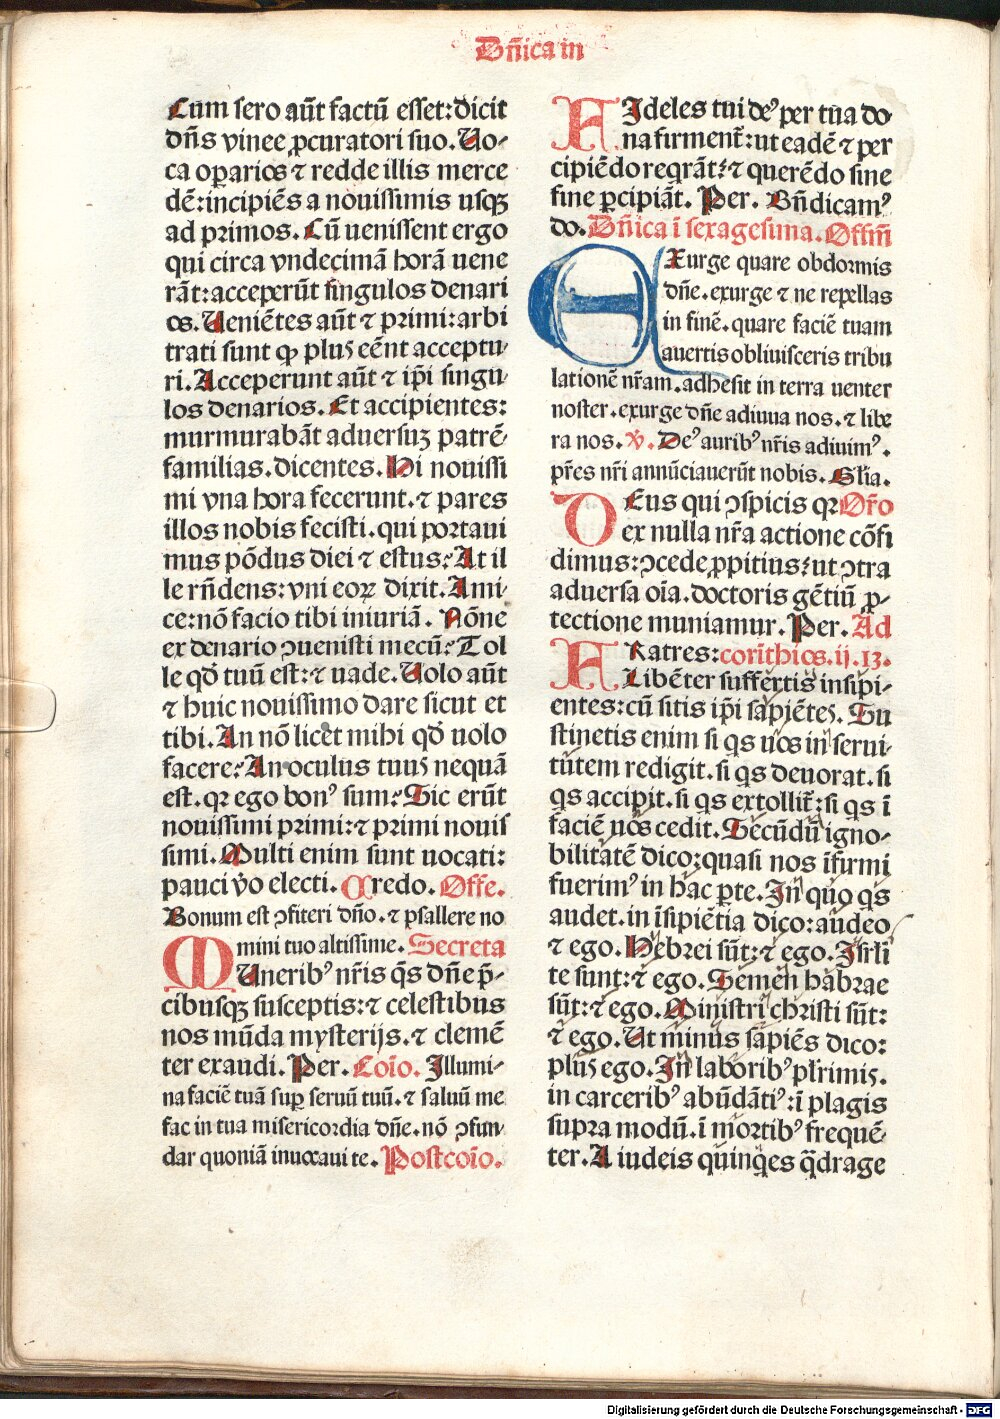 Dn̄ica in
Cum sero aūt factū esset: dicit
dn̄s vinee ꝓcuratori suo. Uo-
ca oꝑarios ⁊ redde illis merce
dē: incipiēs a nouissimis usqꝫ
ad primos. Cū uenissent ergo
qui circa vndecimā horā uene
rāt: acceperūt singulos denari
os. Ueniētes aūt ⁊ primi: arbi
trati sunt qꝫ plus eēnt acceptu-
ri. Acceperunt aūt ⁊ ip̄i singu-
los denarios. Et accipientes:
murmurabāt aduersuꝫ patrē-
familias. dicentes. Hi nouissi
mi vna hora fecerunt. ⁊ pares
illos nobis fecisti. qui portaui
mus pōdus diei ⁊ estus? At il
le rn̄dens: vni eoꝝ dixit. Ami-
ce: nō facio tibi iniuriā. Nōne
ex denario ꝯuenisti mecū? Tol
le qd̄ tuū est: ⁊ uade. Uolo aūt
⁊ huic nouissimo dare sicut et
tibi. An nō licet mihi qd̄ uolo
facere? An oculus tuus nequā
est. qꝛ ego bonꝰ sum? Sic erūt
nouissimi primi: ⁊ primi nouis
simi. Multi enim sunt uocati:
pauci v̄o electi. Credo. Offe.
Bonum est ꝯfiteri dn̄o. ⁊ psallere no
mini tuo altissime. Secreta
MUneribꝰ nr̄is q̄s dn̄e p̄-
cibusqꝫ susceptis: ⁊ celestibus
nos mūda mysterijs. ⁊ clemē
ter exaudi. Per. Coīo. Illumi-
na faciē tuā suꝑ seruū tuū. ⁊ saluū me
fac in tua misericordia dn̄e. nō ꝯfun-
dar quoniā inuocaui te. Postcoīo.
FIdeles tui deꝰ per tua do-
na firment̄: ut eadē ⁊ per
cipiēdo reqrāt: ⁊ querēdo sine
fine ꝑcipiāt. Per. Bn̄dicamꝰ
do. Dn̄ica ī sexagesima. Offm̄
EXurge quare obdormis
dn̄e. exurge ⁊ ne repellas
in finē. quare faciē tuam
auertis obliuisceris tribu
lationē nr̄am. adhesit in terra uenter
noster. exurge dn̄e adiuua nos. ⁊ libe
ra nos. v̄. Deꝰ auribꝰ nr̄is adiuimꝰ.
pr̄es nr̄i annūciauerūt nobis. Gl̄ia.
DEus qui ꝯspicis qꝛ Or̄o
ex nulla nr̄a actione cōfi
dimus: ꝯcede ꝓpitius: ut ꝯtra
aduersa oīa. doctoris gētiū ꝓ-
tectione muniamur. Per. Ad
FRatres: corīthios. ij. 13.
Libēter suffertis insipi-
entes: cū sitis ip̄i sapiētes. Su
stinetis enim si qs uos in serui-
tūtem redigit. si qs deuorat. si
qs accipit. si qs extollit̄: si qs ī
faciē uos cedit. Secūdū igno-
bilitatē dico: quasi nos īfirmi
fuerimꝰ in hac ꝑte. In quo qs
audet. in īsipiētia dico: audeo
⁊ ego. Hebrei sūt: ⁊ ego. Isrl̄i
te sunt: ⁊ ego. Semen habrae
sūt: ⁊ ego. Ministri christi sūt:
⁊ ego. Ut minus sapiēs dico:
plus ego. In laboribꝰ pl̄rimis.
in carceribꝰ abūdātiꝰ: ī plagis
supra modū. ī mortibꝰ frequē-
ter. A iudeis quinqes q̄drage
Digitalisierung gefördert durch die Deutsche Forschungsgemeinschaft - DFG